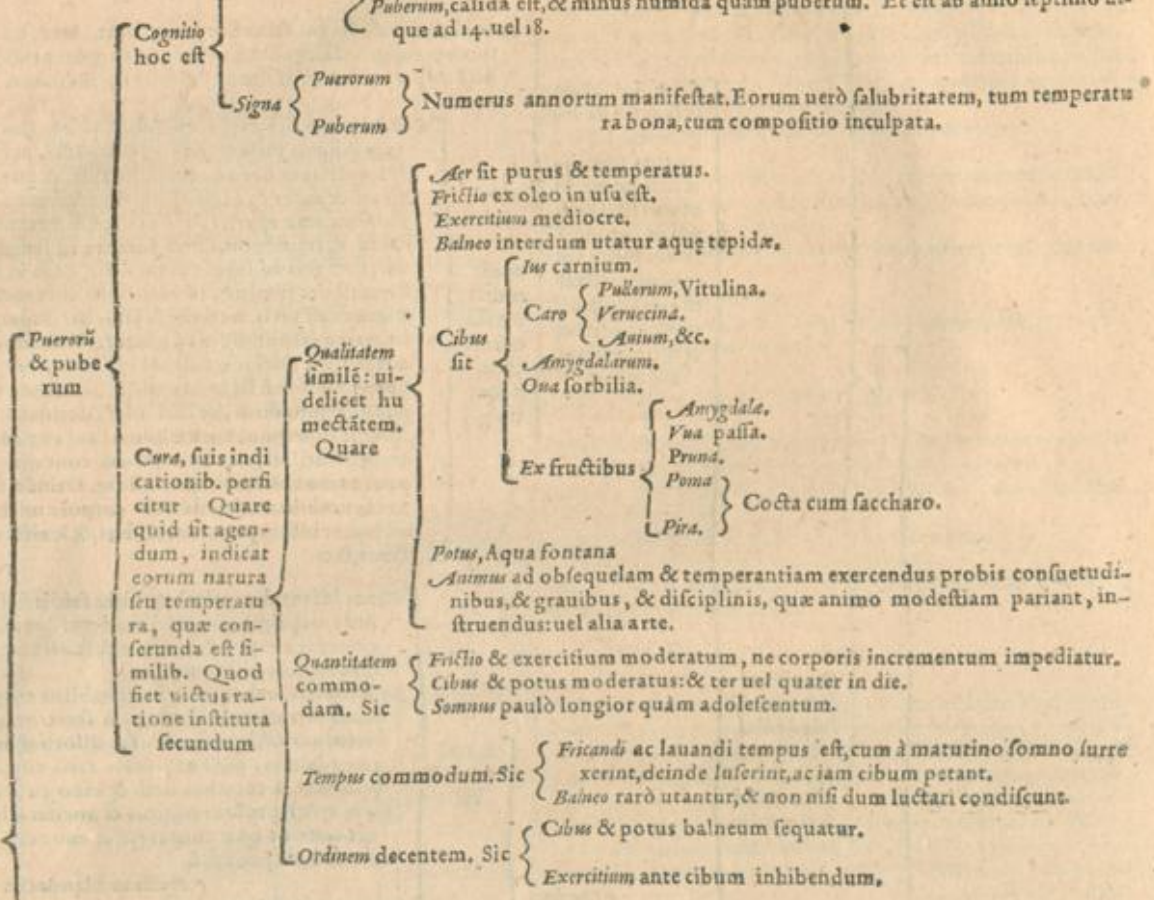 Puberum, calida est, & minus humida quàm puberum. Et est ab anno septimo us-
que ad 14. uel 18.
Cognitio
hoc est
Signa
Puerorum
Puberum
Numerus annorum manifestat. Eorum uerò salubritatem, tum temperatu
ra bona, tum compositio inculpata.
Puerorũ
& pube
rum
Cura, suis indi
cationib. perfi
citur Quare
quid sit agen-
dum, indicat
eorum natura
seu temperatu
ra, quæ con-
seruanda est si-
milib. Quod
fiet uictus ra-
tione instituta
secundum
Qualitatem
similẽ: ui-
delicet hu
mectãtem.
Quare
Aer sit purus & temperatus.
Frictio ex oleo in usu est.
Exercitium mediocre.
Balneo interdum utatur aquę tepidæ.
Cibus
sit
Ius carnium.
Caro
Pullorum, Vitulina.
Veruecina.
Auium, &c.
Amygdalarum.
Oua sorbilia.
Ex fructibus
Amygdalæ.
Vua passa.
Pruna.
Poma
Pira.
Cocta cum saccharo.
Potus, Aqua fontana
Animus ad obsequelam & temperantiam exercendus probis consuetudi-
nibus, & grauibus, & disciplinis, quæ animo modestiam pariant, in-
struendus: uel alia arte.
Quantitatem
commo-
dam. Sic
Frictio & exercitium moderatum, ne corporis incrementum impediatur.
Cibus & potus moderatus: & ter uel quater in die.
Somnus paulò longior quàm adolescentum.
Tempus commodum. Sic
Fricandi ac lauandi tempus est, cum à matutino somno surre
xerint, deinde luserint, ac iam cibum petant.
Balneo rarò utantur, & non nisi dum luctari condiscunt.
Ordinem decentem. Sic
Cibus & potus balneum sequatur.
Exercitium ante cibum inhibendum.